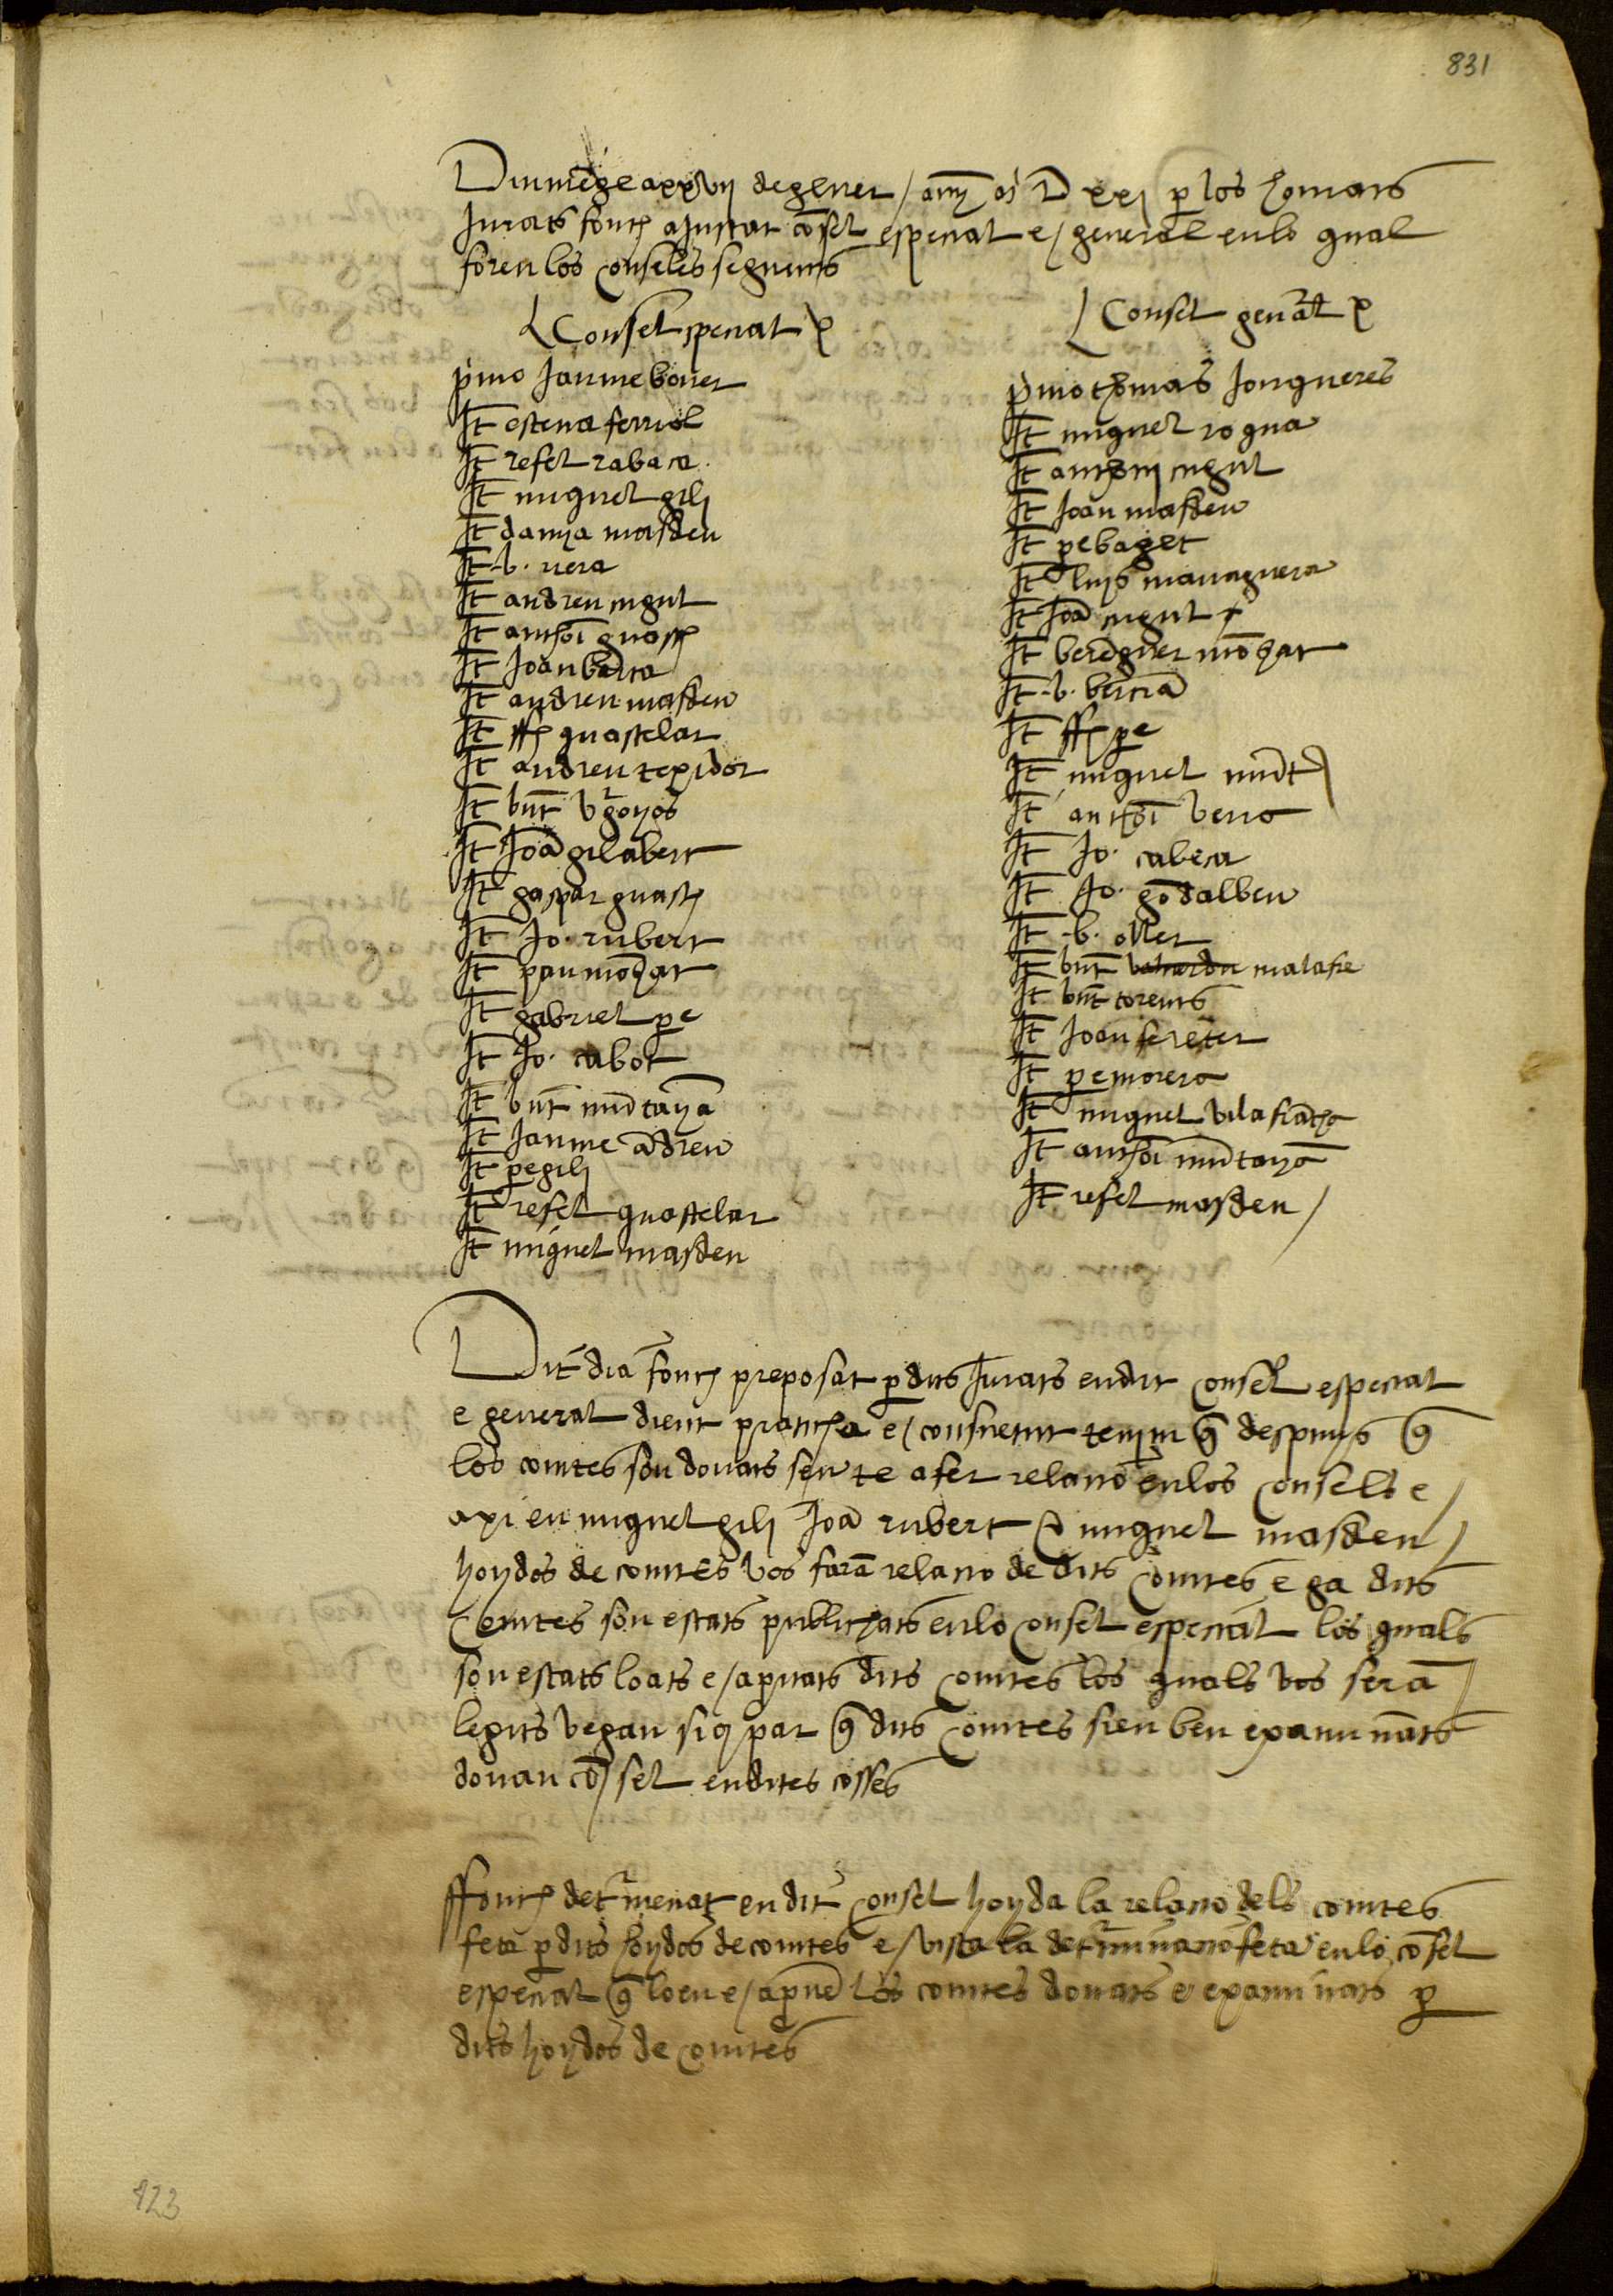 831
Diumege a xxvij de gener / any M D xxj p los honrats
Jurats fonch ajustat cosel especial e / general en lo qual
foren los conseles seguents
Consel special
pmo Jaume boner
It esteva ferriol
It refel rabaca
It miquel gili
It damya masdeu
It b. riera
It andreu mgul
It anthoi guasch
It Joan barta
It andreu masdeu
It ff guastelar
It andreu texidor
It bnt vgoyos
It Joa gilabert
It gaspar guasch
It Jo. rubert
It pau mogat
It gabriel pe
It Jo. cabot
It bnt mutaya
It Jaume adreu
It pe gili
It refel guastelar
It miquel masdeu
Consel genal
pmo thomas Jonqueres
It miquel rogua
It anthonj mgul
It Joan masdeu
It pe baget
It luys managuera
It Joa mgul
It bereguer mogat
It b. bertra
It ff pe
It miquel munt
It anthoi verro
It Jo. cabeca
It Jo. godalbeu
It b. oller
It bnt malafre
It bnt torents
It Joan fereter
It pe morera
It miquel vilafracha
It anthoi mutaya
It refel masdeu /
Dit dia fonch preposat p dits Jurats en dit consel especial
e general dient praticha e / consuetut tenim q despuys q
los comtes son donats sen te a fer relacio en los consells e /
axi en miquel gili Joa rubert e miquel masdeu /
hoydos de comtes vos fara relacio de dits comtes e ga dits
comtes son estats publichats en lo consel especial los quals
son estats loats e / apuats dits comtes los quals vos sera
legits vegan siq par q dits comtes sien ben examinats
donan cosel en dites cosses
ffonch detmenat en dit consel hoyda la relacio dels comtes
feta p dits hoydos de comtes e / vista la detminacio feta en lo cosel
especial q loen e / apue los comtes donats e examinats p
dits hoydos de comtes
823